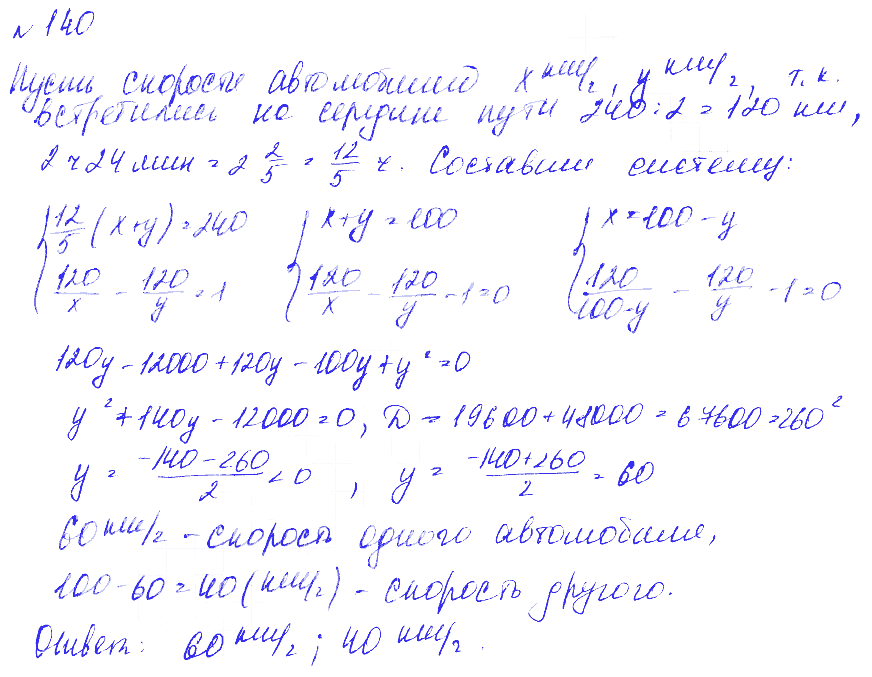 № 140
Пусть скорости автомобилей x км/ч, y км/ч, т.к.
встретились на середине пути 240:2=120 км,
2 ч 24 мин = 2 2/5 = 12/5 ч. Составим систему:
{ 12/5 (x+y)=240 { x+y=100 { x=100-y
{ 120/x - 120/y = 1 { 120/x - 120/y - 1=0 { 120/(100-y) - 120/y - 1=0
120y-12000+120y-100y+y²=0
y²+140y-12000=0, D=19600+48000=67600=260²
y = (-140-260)/2 < 0, y = (-140+260)/2 = 60
60 км/ч - скорость одного автомобиля,
100-60=40 (км/ч) - скорость другого.
Ответ: 60 км/ч; 40 км/ч.